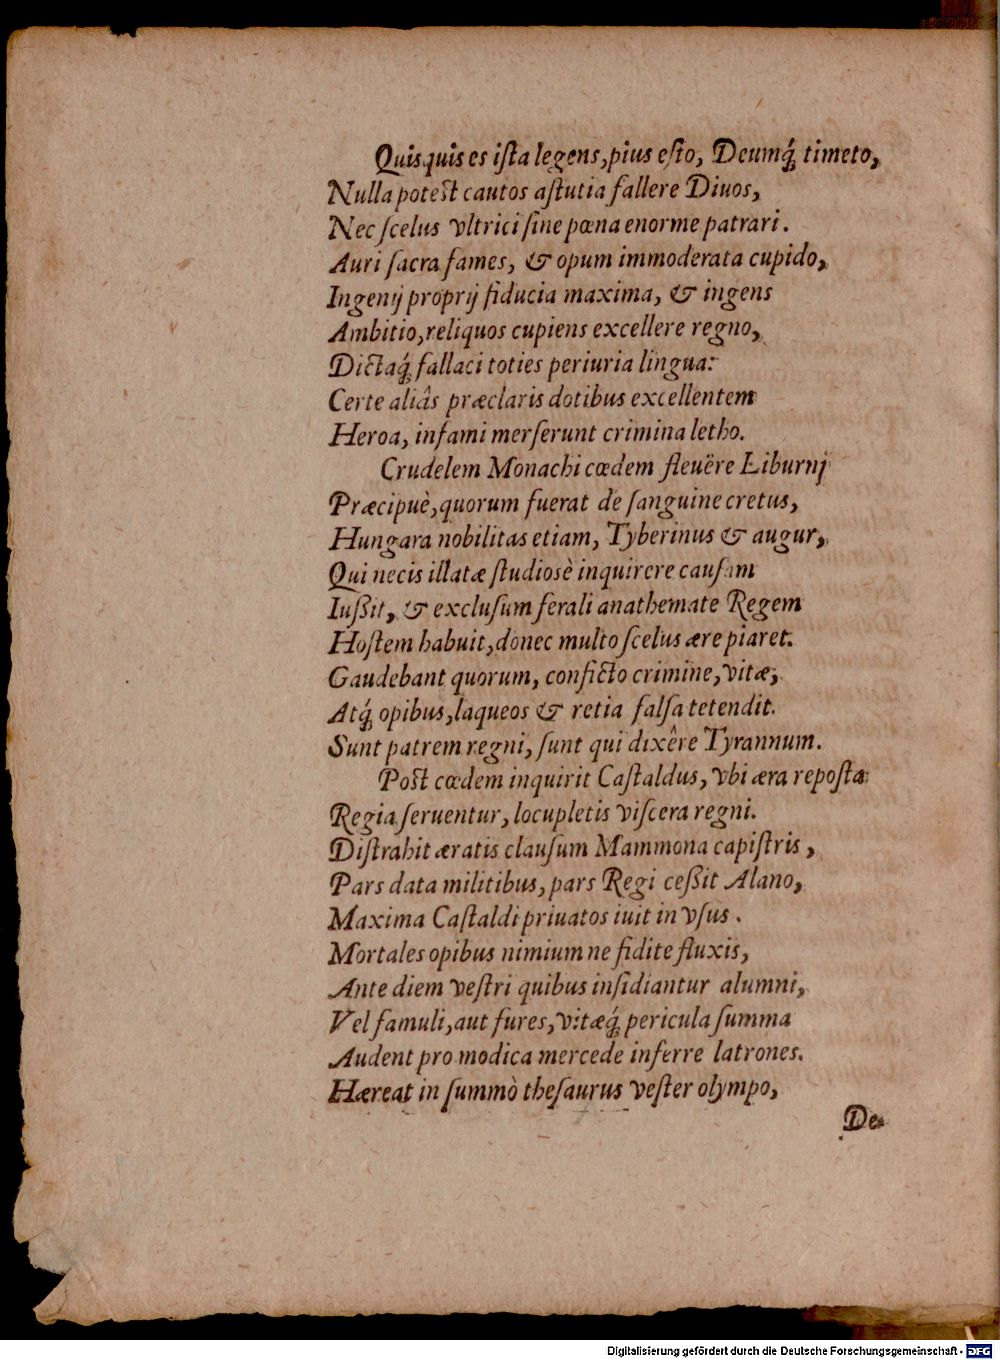 Quisquis es iſta legens, pius eſto, Deumq́; timeto,
Nulla poteſt cautos aſtutia fallere Diuos,
Nec ſcelus vltrici ſine pœna enorme patrari.
Auri ſacra fames, & opum immoderata cupido,
Ingenij proprij fiducia maxima, & ingens
Ambitio, reliquos cupiens excellere regno,
Dictaq́; fallaci toties periuria lingua:
Certe aliâs præclaris dotibus excellentem
Heroa, infami merſerunt crimina letho.
Crudelem Monachi cœdem fleuëre Liburni
Præcipuè, quorum fuerat de ſanguine cretus,
Hungara nobilitas etiam, Tyberinus & augur,
Qui necis illatæ ſtudiosè inquirere cauſam
Iußit, & excluſum ferali anathemate Regem
Hoſtem habuit, donec multo ſcelus ære piaret.
Gaudebant quorum, conficto crimine, vitæ,
Atq́; opibus, laqueos & retia falſa tetendit.
Sunt patrem regni, ſunt qui dixêre Tyrannum.
Poſt cœdem inquirit Caſtaldus, vbi æra repoſta
Regia ſeruentur, locupletis viſcera regni.
Diſtrahit æratis clauſum Mammona capiſtris,
Pars data militibus, pars Regi ceßit Alano,
Maxima Caſtaldi priuatos iuit in vſus.
Mortales opibus nimium ne fidite fluxis,
Ante diem veſtri quibus inſidiantur alumni,
Vel famuli, aut fures, vitæq́; pericula ſumma
Audent pro modica mercede inferre latrones.
Hæreat in ſummò theſaurus veſter olympo,
De-
Digitalisierung gefördert durch die Deutsche Forschungsgemeinschaft - DFG